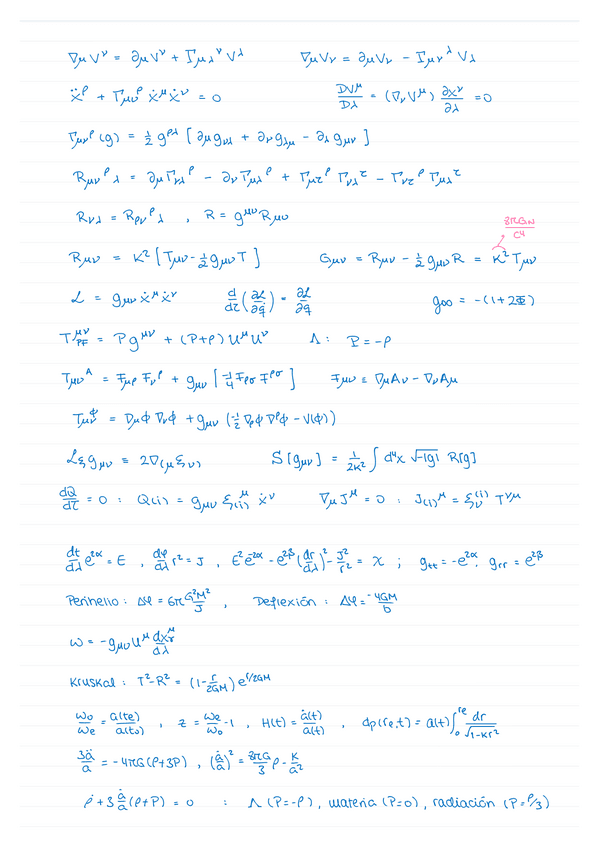 ∇μV^ν = ∂μV^ν + Γμλ^ν V^λ    ∇μVν = ∂μVν − Γμν^λ Vλ
ẍ^ρ + Γμν^ρ ẋ^μ ẋ^ν = 0    DV^μ/Dλ = (∇νV^μ) ∂x^ν/∂λ = 0
Γμν^ρ(g) = 1/2 g^ρλ [∂μgνλ + ∂νgλμ − ∂λgμν]
Rμν^ρλ = ∂μΓνλ^ρ − ∂νΓμλ^ρ + Γμτ^ρ Γνλ^τ − Γντ^ρ Γμλ^τ
Rνλ = Rρν^ρλ , R = g^μν Rμν
8πGN/C4
Rμν = K²[Tμν − 1/2 gμνT]    Gμν = Rμν − 1/2 gμνR = K² Tμν
ℒ = gμν ẋ^μ ẋ^ν    d/dτ(∂ℒ/∂q̇) = ∂ℒ/∂q    g00 = −(1+2Φ)
T^μν PF = Pg^μν + (P+ρ)U^μU^ν    Λ: P = −ρ
Tμν^A = Fμρ Fν^ρ + gμν[−1/4 Fρσ F^ρσ]    Fμν = ∇μAν − ∇νAμ
Tμν^ϕ = ∇μϕ ∇νϕ + gμν(−1/2 ∇ρϕ ∇^ρϕ − V(ϕ))
ℒξ gμν = 2∇(μξν)    S[gμν] = 1/2K² ∫ d⁴x √−|g| R[g]
dQ/dτ = 0 : Q(i) = gμν ξ(i)^μ ẋ^ν    ∇μJ^μ = 0 : J(i)^μ = ξν^(i) T^νμ
dt/dλ e^2α = E , dφ/dλ r² = J , E²e^−2α − e^2β(dr/dλ)² − J²/r² = χ ; gtt = −e^2α, grr = e^2β
Perihelio : Δφ = 6π G²M²/J , Deflexión : Δφ = −4GM/b
ω = −gμν U^μ dx^μ/dλ
Kruskal : T²−R² = (1−r/2GM) e^r/2GM
ωo/ωe = a(te)/a(to) , z = ωe/ωo −1 , H(t) = ȧ(t)/a(t) , dp(re,t) = a(t)∫0^re dr/√1−Kr²
3ä/a = −4πG(ρ+3P) , (ȧ/a)² = 8πG/3 ρ − K/a²
ρ̇ + 3 ȧ/a (ρ+P) = 0 : Λ (P=−ρ), materia (P=0), radiación (P=ρ/3)